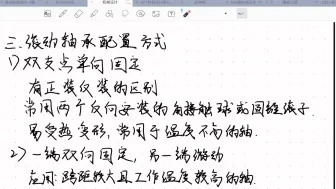 三.滚动轴承配置方式
1)双支点单向固定
有正装反装的区别
常用两个反向安装的角接触球或圆锥滚子.
易受热变形,常用于温度不高的轴.
2)一端双向固定,另一端游动
应用:跨距较大且工作温度较高的轴.